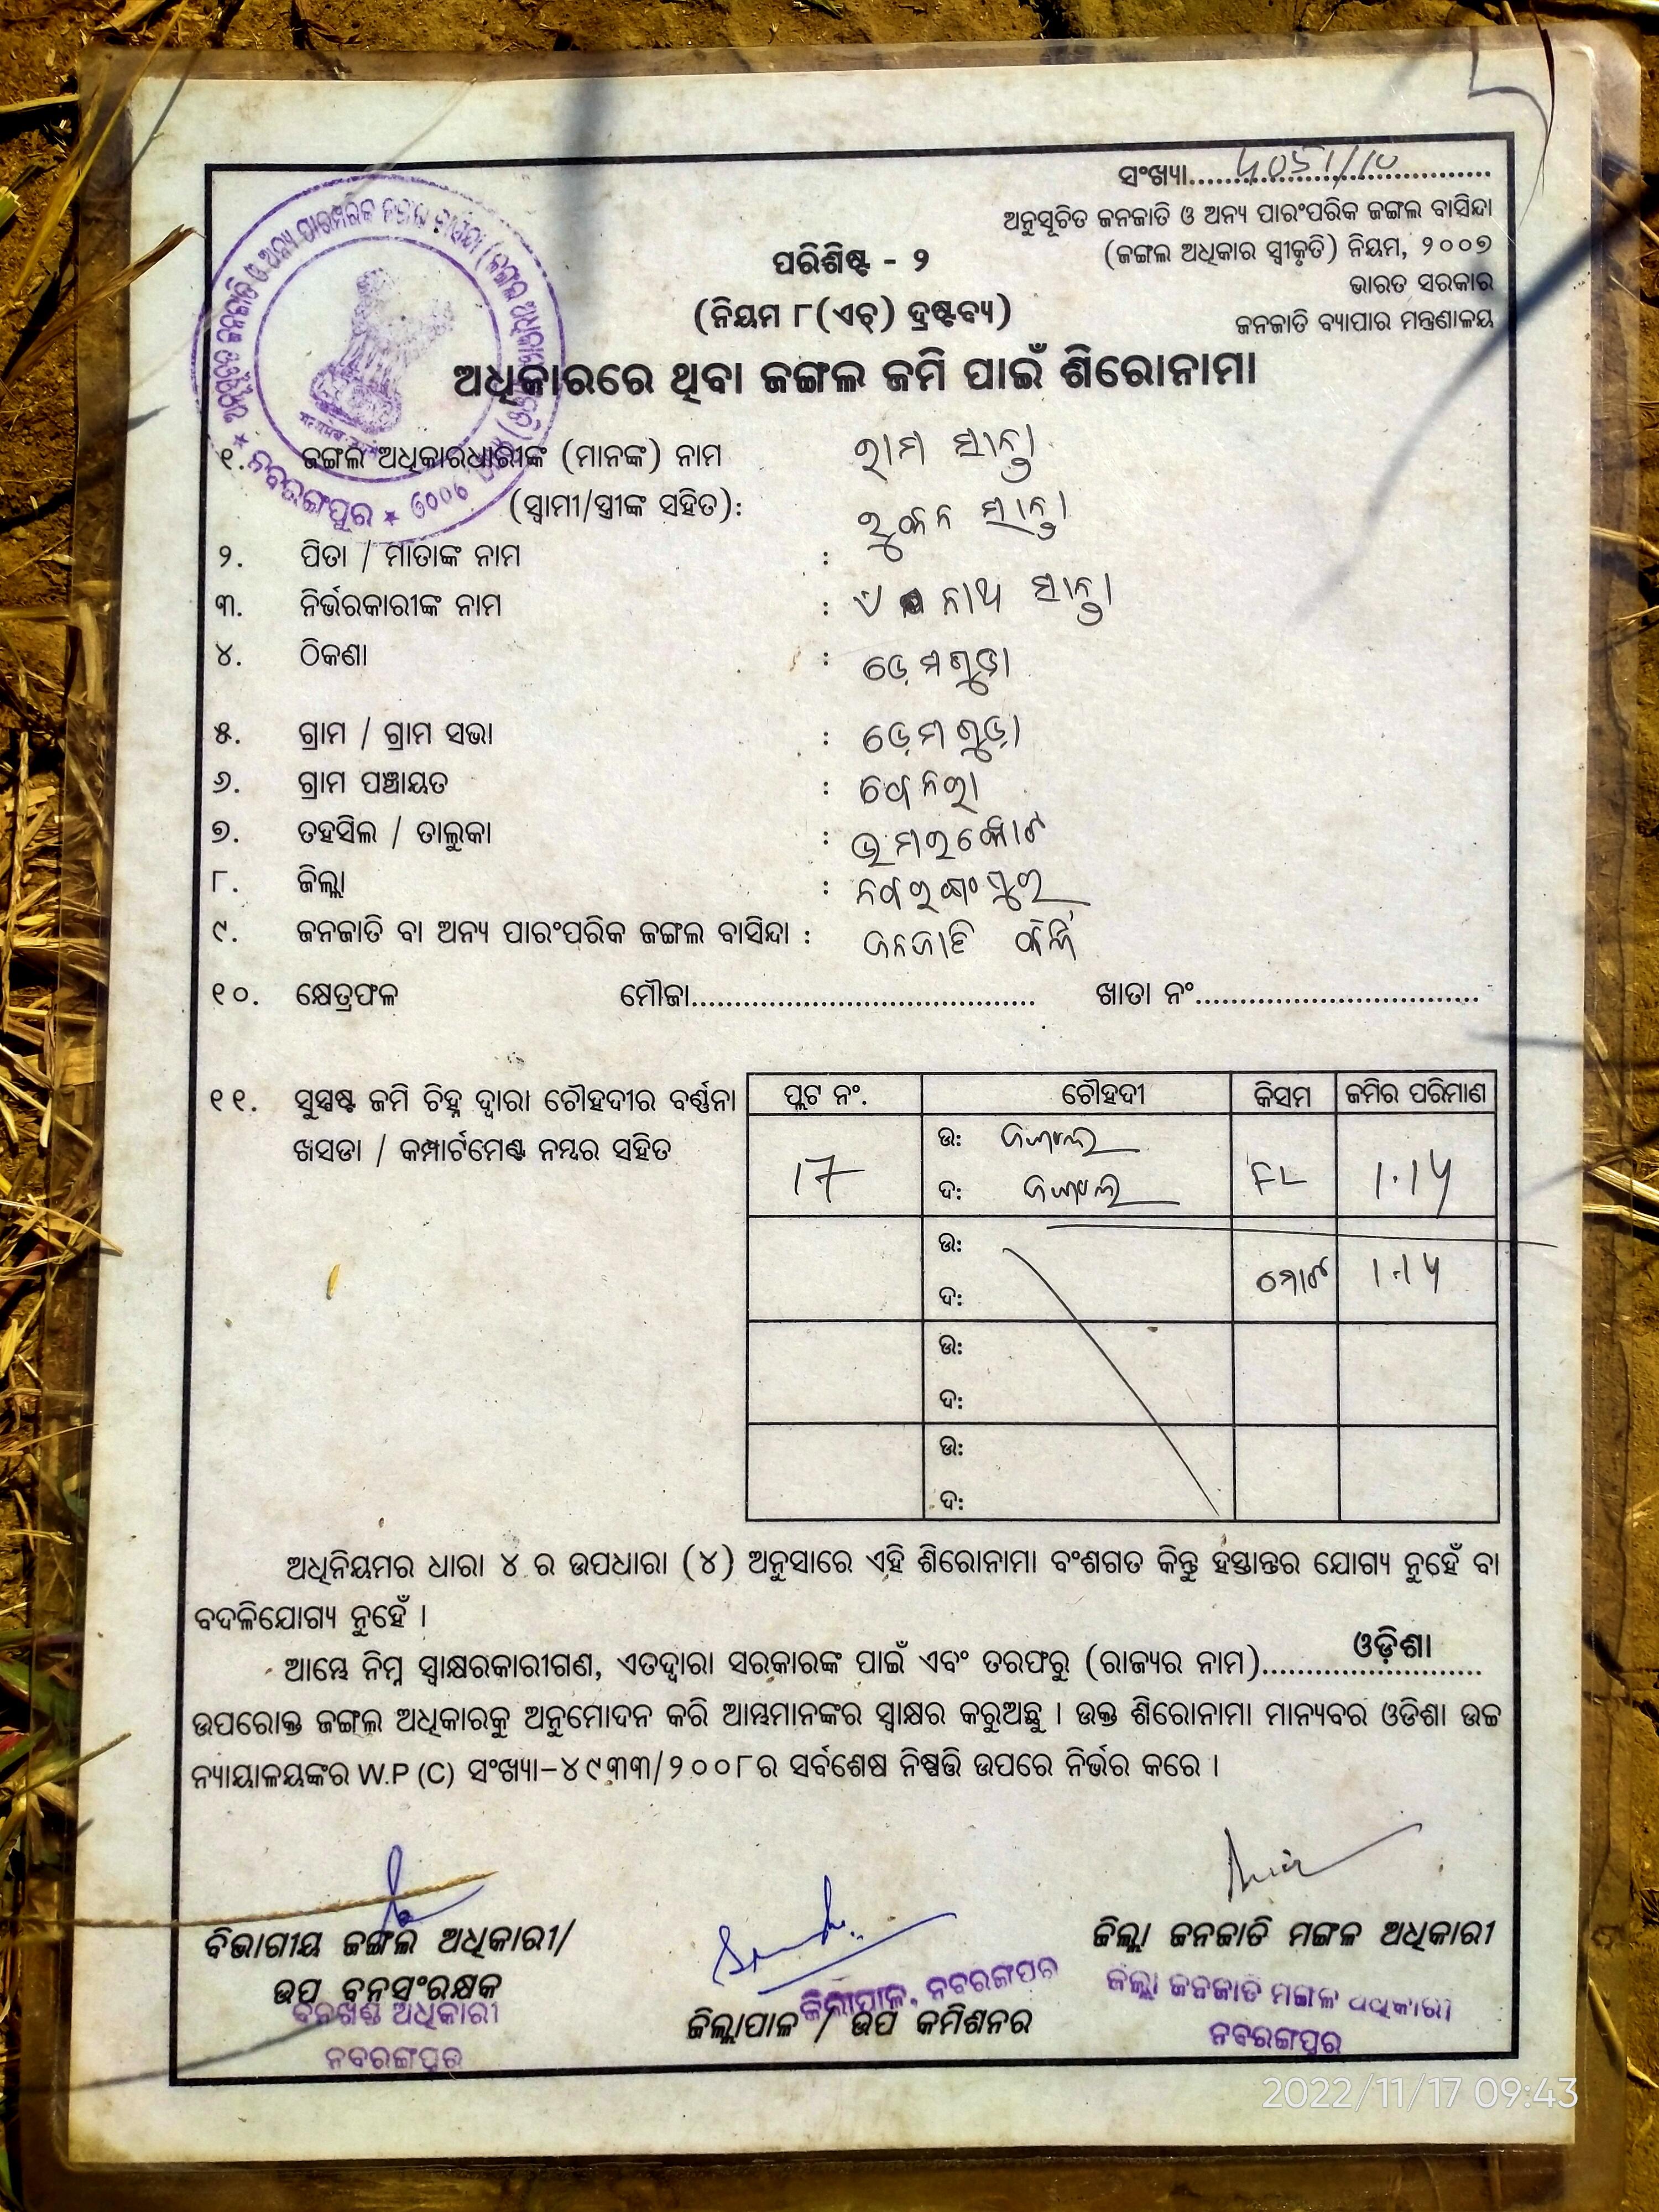 ସଂଖ୍ୟା
ଅନୁସୂଚିତ ଜନଜାତି ଓ ଅନ୍ୟ ପାରଂପରିକ ଜଙ୍ଗଲ ବାସିନ୍ଦା
(ଜଙ୍ଗଲ ଅଧିକାର ସ୍ୱୀକୃତି) ନିୟମ, ୨୦୦୭
ଭାରତ ସରକାର
ଜନଜାତି ବ୍ୟାପାର ମନ୍ତ୍ରଣାଳୟ
ପରିଶିଷ୍ଟ - ୨
(ନିୟମ ୮(ଏଚ୍) ଦ୍ରଷ୍ଟବ୍ୟ)
ଅଧିକାରରେ ଥିବା ଜଙ୍ଗଲ ଜମି ପାଇଁ ଶିରୋନାମା
ନବରଙ୍ଗପୁର
୧. ଜଙ୍ଗଲ ଅଧିକାରଧାରୀଙ୍କ (ମାନଙ୍କ) ନାମ ରାମ ସାନ୍ତା
(ସ୍ୱାମୀ/ସ୍ତ୍ରୀଙ୍କ ସହିତ): ସାନ୍ତା
୨. ପିତା / ମାତାଙ୍କ ନାମ :
୩. ନିର୍ଭରକାରୀଙ୍କ ନାମ : ସାନ୍ତା
୪. ଠିକଣା :
୫. ଗ୍ରାମ / ଗ୍ରାମ ସଭା :
୬. ଗ୍ରାମ ପଞ୍ଚାୟତ :
୭. ତହସିଲ / ତାଲୁକା : ଉମରକୋଟ
୮. ଜିଲ୍ଲା : ନବରଙ୍ଗପୁର
୯. ଜନଜାତି ବା ଅନ୍ୟ ପାରଂପରିକ ଜଙ୍ଗଲ ବାସିନ୍ଦା : ଜନଜାତି
୧୦. କ୍ଷେତ୍ରଫଳ ମୌଜା ଖାତା ନଂ
୧୧. ସୁସ୍ପଷ୍ଟ ଜମି ଚିହ୍ନ ଦ୍ୱାରା ଚୌହଦୀର ବର୍ଣ୍ଣନା
ଖସଡା / କମ୍ପାର୍ଟମେଣ୍ଟ ନମ୍ବର ସହିତ
ପ୍ଲଟ ନଂ. ଚୌହଦୀ କିସମ ଜମିର ପରିମାଣ
17 ଉ: ଜଙ୍ଗଲ FL 1.14
ଦ: ଜଙ୍ଗଲ
ଉ: ମୋଟ 1.14
ଦ:
ଉ:
ଦ:
ଉ:
ଦ:
ଅଧିନିୟମର ଧାରା ୪ ର ଉପଧାରା (୪) ଅନୁସାରେ ଏହି ଶିରୋନାମା ବଂଶଗତ କିନ୍ତୁ ହସ୍ତାନ୍ତର ଯୋଗ୍ୟ ନୁହେଁ ବା
ବଦଳିଯୋଗ୍ୟ ନୁହେଁ ।
ଆମ୍ଭେ ନିମ୍ନ ସ୍ୱାକ୍ଷରକାରୀଗଣ, ଏତଦ୍ୱାରା ସରକାରଙ୍କ ପାଇଁ ଏବଂ ତରଫରୁ (ରାଜ୍ୟର ନାମ) ଓଡ଼ିଶା
ଉପରୋକ୍ତ ଜଙ୍ଗଲ ଅଧିକାରକୁ ଅନୁମୋଦନ କରି ଆମ୍ଭମାନଙ୍କର ସ୍ୱାକ୍ଷର କରୁଅଛୁ । ଉକ୍ତ ଶିରୋନାମା ମାନ୍ୟବର ଓଡିଶା ଉଚ୍ଚ
ନ୍ୟାୟାଳୟଙ୍କର W.P (C) ସଂଖ୍ୟା-୪୯୩୩/୨୦୦୮ର ସର୍ବଶେଷ ନିଷ୍ପତ୍ତି ଉପରେ ନିର୍ଭର କରେ ।
ବିଭାଗୀୟ ଜଙ୍ଗଲ ଅଧିକାରୀ/
ଉପ ବନସଂରକ୍ଷକ
ବନଖଣ୍ଡ ଅଧିକାରୀ
ନବରଙ୍ଗପୁର
ଜିଲ୍ଲାପାଳ, ନବରଙ୍ଗପୁର
ଜିଲ୍ଲାପାଳ / ଉପ କମିଶନର
ଜିଲ୍ଲା ଜନଜାତି ମଙ୍ଗଳ ଅଧିକାରୀ
ଜିଲ୍ଲା ଜନଜାତି ମଙ୍ଗଳ ଅଧିକାରୀ
ନବରଙ୍ଗପୁର
2022/11/17 09:43